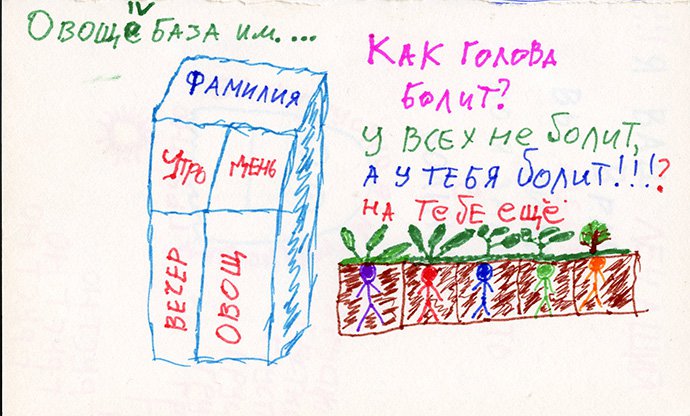 IV
ОВОЩЕ БАЗА ИМ. ...
ФАМИЛИЯ
УТРО
МЕНЬ
ВЕЧЕР
ОВОЩ
КАК ГОЛОВА
БОЛИТ?
У ВСЕХ НЕ БОЛИТ,
А У ТЕБЯ БОЛИТ!!!?
НА ТЕБЕ ЕЩЁ